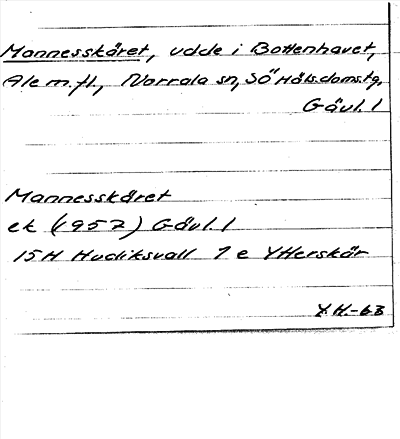 Mannesskäret, udde i Bottenhavet,
Ale m.fl., Norrala sn, Sö Häls.doms.tg,
Gävl. l
Mannesskäret
ek (1957) Gävl. l
15H Hudiksvall 7 e Ytterskär
Y.H.-63